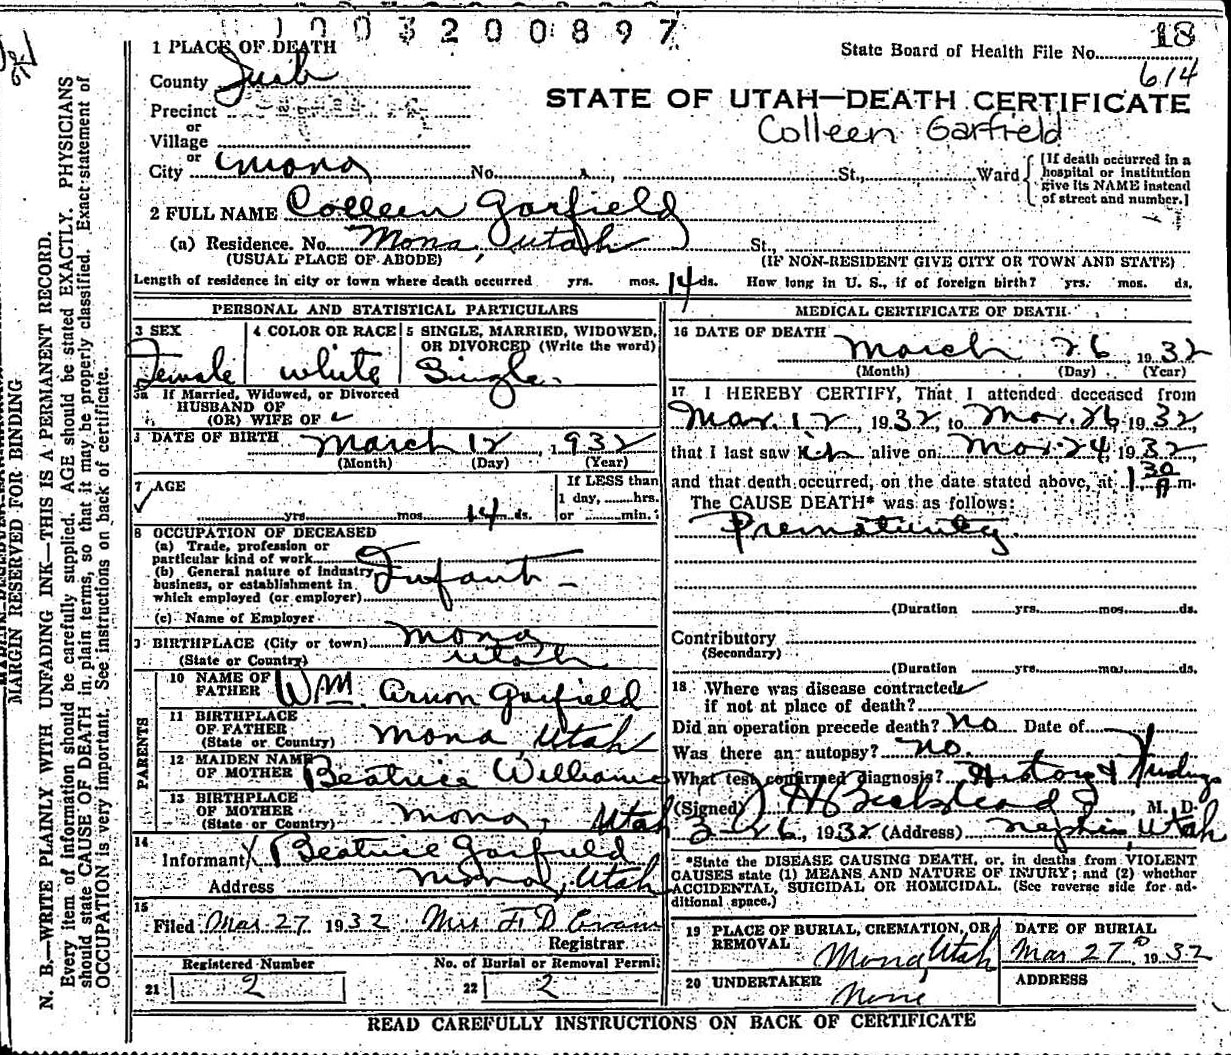 1003200897
18
State Board of Health File No.
614
1 PLACE OF DEATH
County Juab
Precinct
or
Village
or
City Mona No. St., Ward
[If death occurred in a
hospital or institution
give its NAME instead
of street and number.]
STATE OF UTAH—DEATH CERTIFICATE
Colleen Garfield
2 FULL NAME Colleen Garfield
(a) Residence. No. Mona, Utah St.,
(USUAL PLACE OF ABODE) (IF NON-RESIDENT GIVE CITY OR TOWN AND STATE)
Length of residence in city or town where death occurred yrs. mos. 14 ds. How long in U. S., if of foreign birth? yrs. mos. ds.
PERSONAL AND STATISTICAL PARTICULARS
3 SEX
Female
4 COLOR OR RACE
white
5 SINGLE, MARRIED, WIDOWED,
OR DIVORCED (Write the word)
Single
5a If Married, Widowed, or Divorced
HUSBAND OF
(OR) WIFE OF
DATE OF BIRTH March 12, 1932
(Month) (Day) (Year)
7 AGE
yrs. mos. 14 ds.
If LESS than
1 day, ......hrs.
or ......min.
8 OCCUPATION OF DECEASED
(a) Trade, profession or
particular kind of work
(b) General nature of industry,
business, or establishment in
which employed (or employer)
Infant
(c) Name of Employer
BIRTHPLACE (City or town) Mona
(State or Country) Utah
PARENTS
10 NAME OF
FATHER Wm. Arnon Garfield
11 BIRTHPLACE
OF FATHER
(State or Country) Mona, Utah
12 MAIDEN NAME
OF MOTHER Beatrice Williams
13 BIRTHPLACE
OF MOTHER
(State or Country) Mona, Utah
14
Informant X Beatrice Garfield
Address Mona, Utah
15
Filed Mar. 27 1932 Mrs F D Evans
Registrar
Registered Number
21 2
No. of Burial or Removal Permit
22 2
MEDICAL CERTIFICATE OF DEATH
16 DATE OF DEATH
March 26 1932
(Month) (Day) (Year)
17 I HEREBY CERTIFY, That I attended deceased from
Mar. 12, 1932, to Mar. 26 1932,
that I last saw alive on Mar. 24, 1932,
and that death occurred, on the date stated above, at 1 30 A m.
The CAUSE DEATH* was as follows:
Prematurity.
(Duration yrs. mos. ds.
Contributory
(Secondary)
(Duration yrs. mos. ds.
18. Where was disease contracted
if not at place of death?
Did an operation precede death? no Date of
Was there an autopsy? no.
What test confirmed diagnosis? History & Findings
(Signed) J H Beckstead, M. D.
3-26, 1932 (Address) Nephi, Utah
*State the DISEASE CAUSING DEATH, or, in deaths from VIOLENT
CAUSES state (1) MEANS AND NATURE OF INJURY; and (2) whether
ACCIDENTAL, SUICIDAL OR HOMICIDAL. (See reverse side for ad-
ditional space.)
19 PLACE OF BURIAL, CREMATION, OR
REMOVAL
Mona, Utah
DATE OF BURIAL
Mar 27 1932
20 UNDERTAKER
None
ADDRESS
READ CAREFULLY INSTRUCTIONS ON BACK OF CERTIFICATE
MARGIN RESERVED FOR BINDING
N. B.—WRITE PLAINLY WITH UNFADING INK—THIS IS A PERMANENT RECORD.
Every item of information should be carefully supplied. AGE should be stated EXACTLY. PHYSICIANS
should state CAUSE OF DEATH in plain terms, so that it may be properly classified. Exact statement of
OCCUPATION is very important. See instructions on back of certificate.